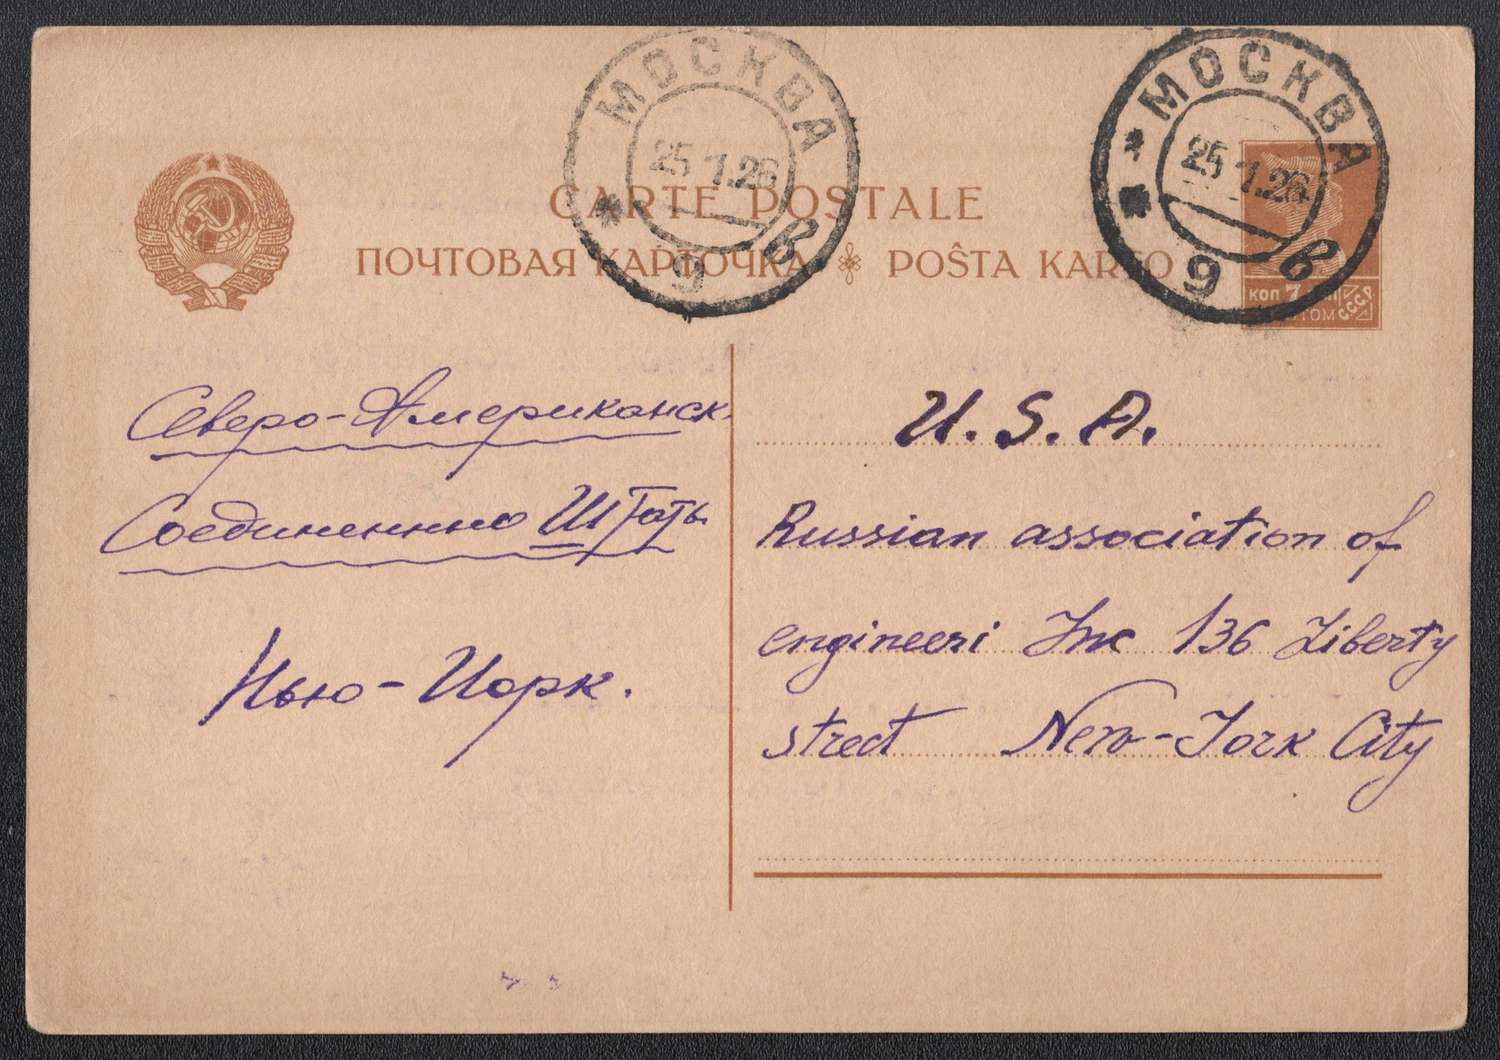 МОСКВА
25 7.26
9 в
МОСКВА
25 7.26
9 в
CARTE POSTALE
ПОЧТОВАЯ КАРТОЧКА POŜTA KARTO
КОП 7
СССР
Северо-Американск.
Соединенные Штаты
Нью-Иорк.
U.S.A.
Russian association of
engineeri Inc 136 Liberty
street New-York City